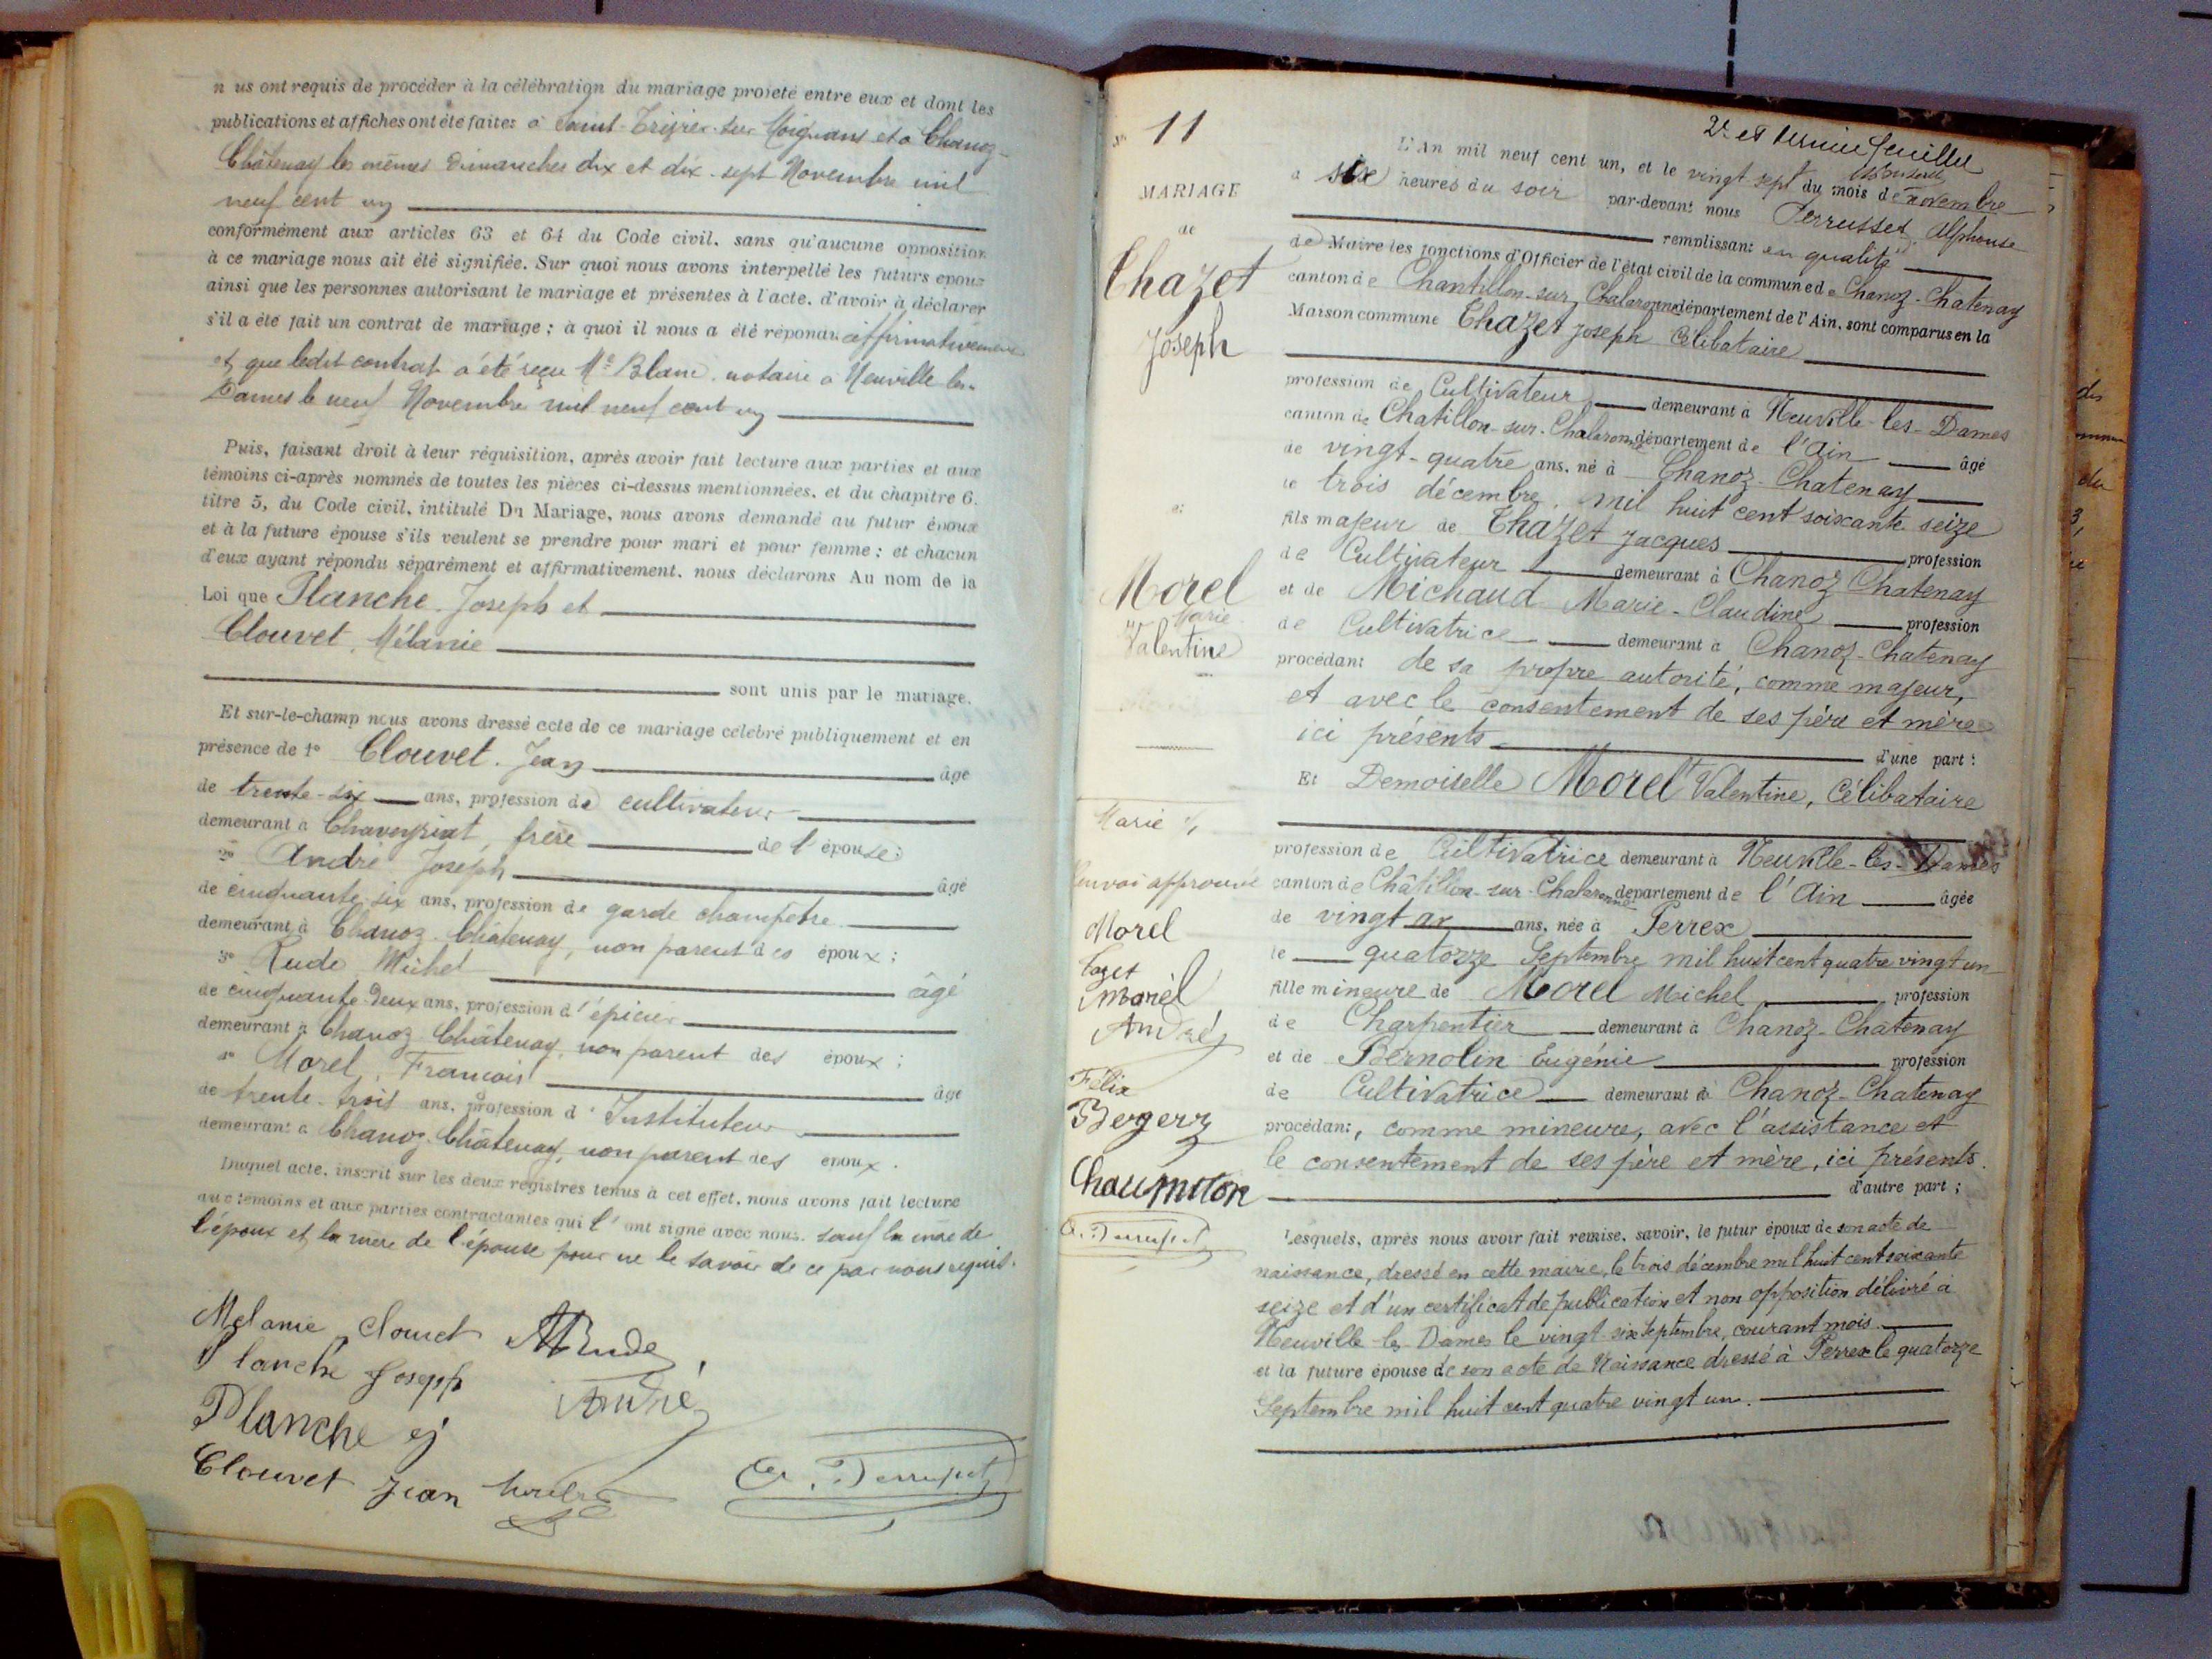 n us ont requis de procéder à la célébration du mariage projeté entre eux et dont les
publications et affiches ont été faites à Saint-Trivier-sur-Moignans et à Chanoz-
Châtenay les mêmes dimanches dix et dix-sept Novembre mil
neuf cent un
conformément aux articles 63 et 64 du Code civil, sans qu'aucune opposition
à ce mariage nous ait été signifiée. Sur quoi nous avons interpellé les futurs époux
ainsi que les personnes autorisant le mariage et présentes à l'acte, d'avoir à déclarer
s'il a été fait un contrat de mariage ; à quoi il nous a été répondu affirmativement
et que ledit contrat a été reçu Me Blanc, notaire à Neuville-les-
Dames le neuf Novembre mil neuf cent un
Puis, faisant droit à leur réquisition, après avoir fait lecture aux parties et aux
témoins ci-après nommés de toutes les pièces ci-dessus mentionnées, et du chapitre 6,
titre 5, du Code civil, intitulé Du Mariage, nous avons demandé au futur époux
et à la future épouse s'ils veulent se prendre pour mari et pour femme ; et chacun
d'eux ayant répondu séparément et affirmativement, nous déclarons Au nom de la
Loi que Planche Joseph et
Clouvet, Mélanie
sont unis par le mariage.
Et sur-le-champ nous avons dressé acte de ce mariage célébré publiquement et en
présence de 1° Clouvet Jean âgé
de trente-six ans, profession de cultivateur
demeurant à Chaveyriat, frère de l'épouse ;
2° André Joseph âgé
de cinquante-six ans, profession de garde champêtre
demeurant à Chanoz-Châtenay, non parent des époux ;
3° Rude Michel âgé
de cinquante-deux ans, profession d'épicier
demeurant à Chanoz-Châtenay, non parent des époux ;
4° Morel, François âgé
de trente-trois ans, profession d'Instituteur
demeurant à Chanoz-Châtenay, non parent des époux.
Duquel acte, inscrit sur les deux registres tenus à cet effet, nous avons fait lecture
aux témoins et aux parties contractantes qui l'ont signé avec nous. sauf la mère de
l'époux et la mère de l'épouse pour ne le savoir de ce par nous requis.
Melanie Clouvet MRude
Planche Joseph André
Planche ej
Clouvet Jean
2e et dernier feuillet
N° 11
L'An mil neuf cent un, et le vingt sept du mois de novembre
à six heures du soir par-devant nous Perrusset, Alphonse
remplissant en qualité
de Maire les fonctions d'Officier de l'état civil de la commune de Chanoz-Chatenay
canton de Chantillon-sur-Chalaronne département de l'Ain, sont comparus en la
Maison commune Chazet Joseph Célibataire
profession de Cultivateur demeurant à Neuville-les-Dames
canton de Chatillon-sur-Chalaronne département de l'Ain âgé
de vingt-quatre ans, né à Chanoz-Chatenay
le trois décembre, mil huit cent soixante seize
fils majeur de Chazet Jacques profession
de Cultivateur demeurant à Chanoz Chatenay
et de Michaud Marie-Claudine profession
de Cultivatrice demeurant à Chanoz-Chatenay
procédant de sa propre autorité, comme majeur,
et avec le consentement de ses père et mère
ici présents d'une part :
Et Demoiselle Morel Valentine, Célibataire
profession de Cultivatrice demeurant à Neuville-les-Dames
canton de Châtillon-sur-Chalaronne département de l'Ain âgée
de vingt ans, née à Perrex
le quatorze Septembre mil huit cent quatre vingt un
fille mineure de Morel Michel profession
de Charpentier demeurant à Chanoz-Chatenay
et de Bernolin Eugénie profession
de Cultivatrice demeurant à Chanoz-Chatenay
procédant, comme mineure, avec l'assistance et
le consentement de ses père et mère, ici présents.
d'autre part ;
Lesquels, après nous avoir fait remise, savoir, le futur époux de son acte de
naissance, dressé en cette mairie, le trois décembre mil huit cent soixante
seize et d'un certificat de publication et non opposition délivré à
Neuville-les-Dames le vingt-six Septembre, courant mois
et la future épouse de son acte de Naissance dressé à Perrex le quatorze
Septembre mil huit cent quatre vingt un.
MARIAGE
de
Chazet
Joseph
et
Morel
Marie
Valentine
Marie
Renvoi approuvé
Morel
Morel
André
Félix
Chaumiton